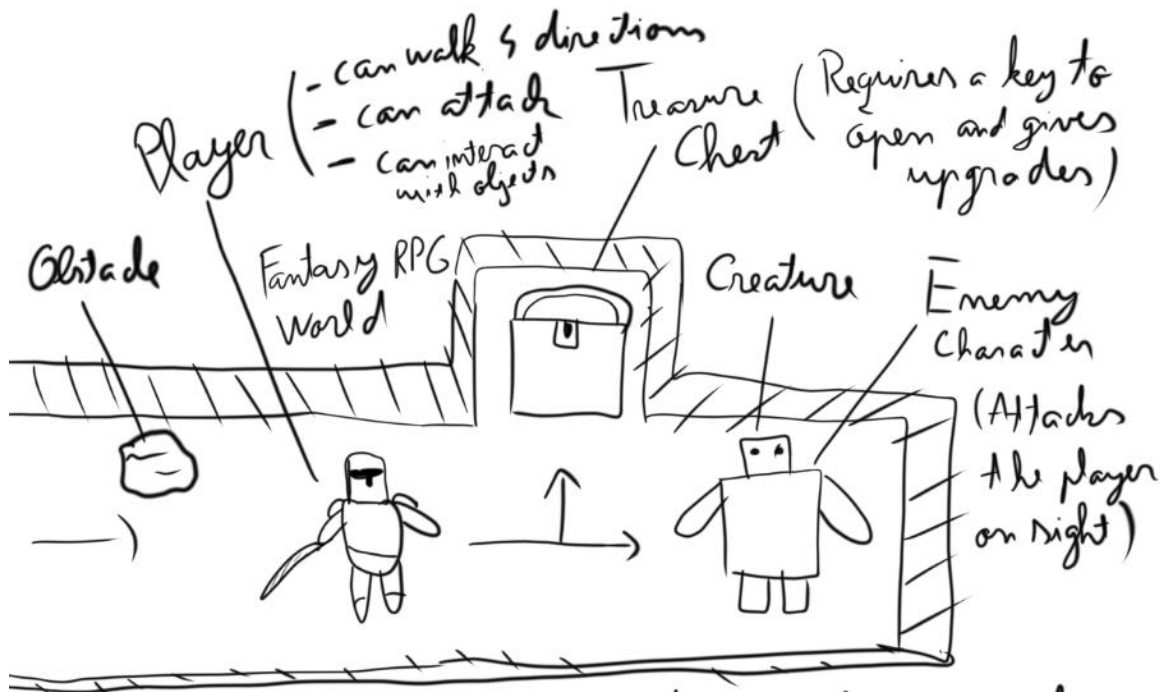 Player
- can walk 4 directions
- can attack
- can interact
with objects
Treasure
Chest
(Requires a key to
open and gives
upgrades)
Obstacle
Fantasy RPG
World
Creature
Enemy
Character
(Attacks
the player
on sight)